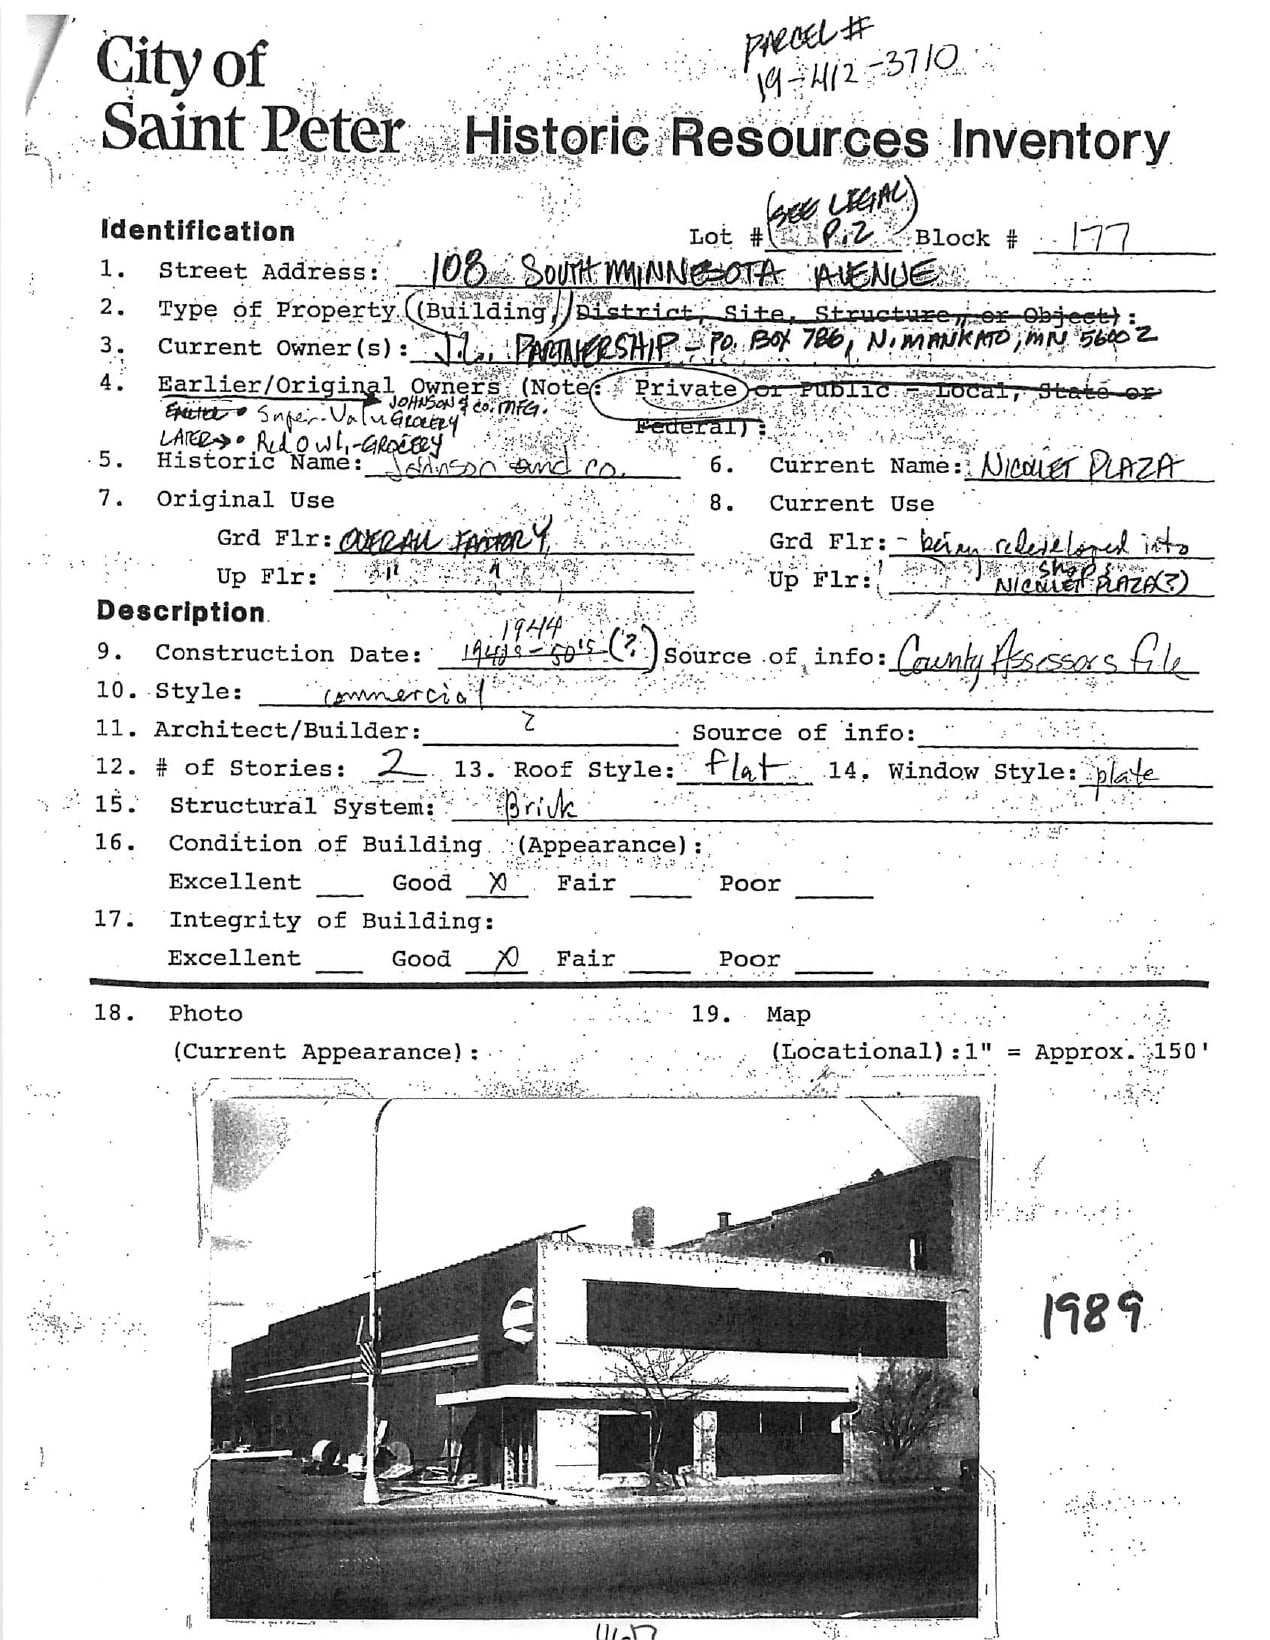 PARCEL #
19-412-3710
City of
Saint Peter Historic Resources Inventory
(SEE LEGAL)
Identification Lot # P.2 Block # 177
1. Street Address: 108 SOUTH MINNESOTA AVENUE
2. Type of Property (Building, District, Site, Structure, or Object):
3. Current Owner(s): PARTNERSHIP - P.O. BOX 786, N. MANKATO, MN 56002
4. Earlier/Original Owners (Note: Private or Public - Local, State or
Federal):
JOHNSON & CO. MFG.
Super-Valu GROCERY
LATER → • Red Owl, - GROCERY
5. Historic Name: Johnson and co. 6. Current Name: NICOLLET PLAZA
7. Original Use 8. Current Use
Grd Flr: OVERALL FACTORY Grd Flr: - being redeveloped into
shops
Up Flr: " " Up Flr: NICOLLET PLAZA(?)
Description
1944
9. Construction Date: 1940s - 50's (?) Source of info: County Assessors file
10. Style: commercial
11. Architect/Builder: ? Source of info:
12. # of Stories: 2 13. Roof Style: flat 14. Window Style: plate
15. Structural System: Brick
16. Condition of Building (Appearance):
Excellent Good X Fair Poor
17. Integrity of Building:
Excellent Good X Fair Poor
18. Photo 19. Map
(Current Appearance): (Locational):1" = Approx. 150'
1989